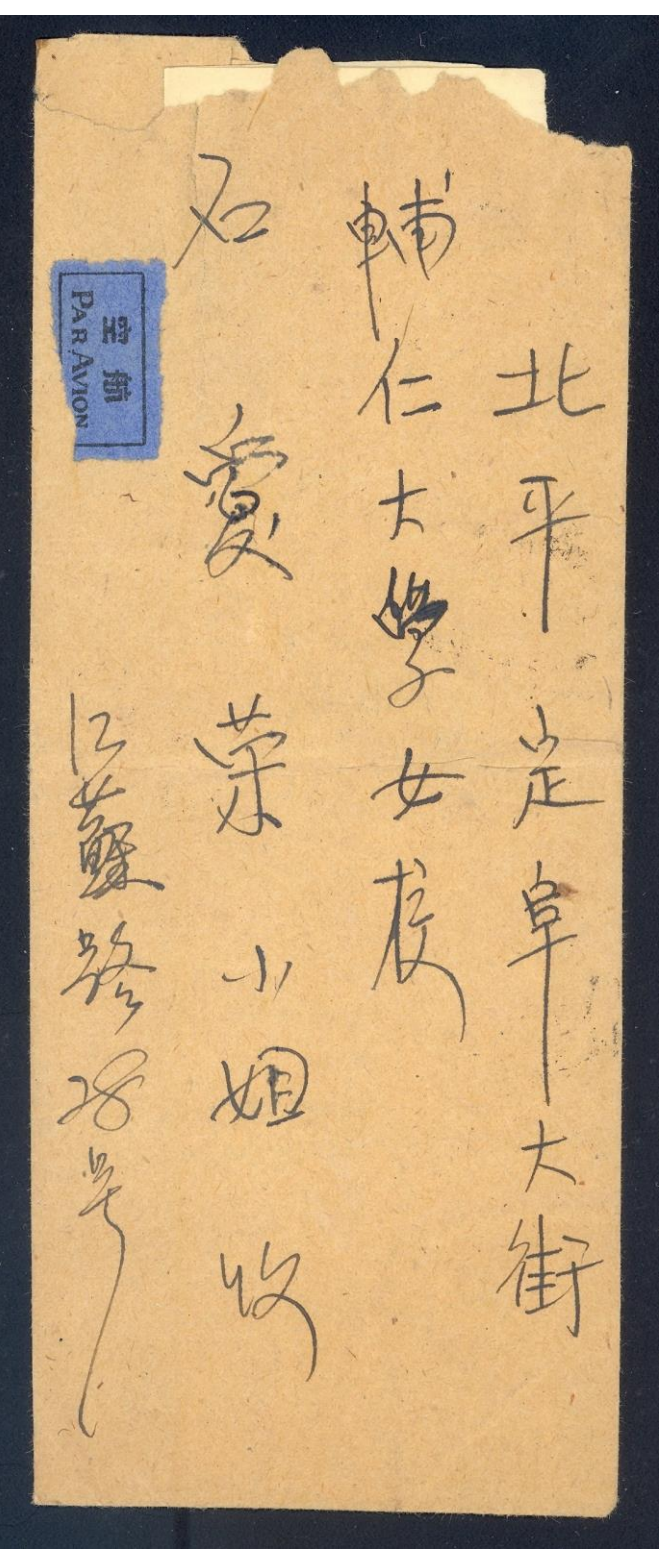 北平定阜大街
輔仁大學女校
石愛荣小姐收
江蘇路28号
航空
PAR AVION